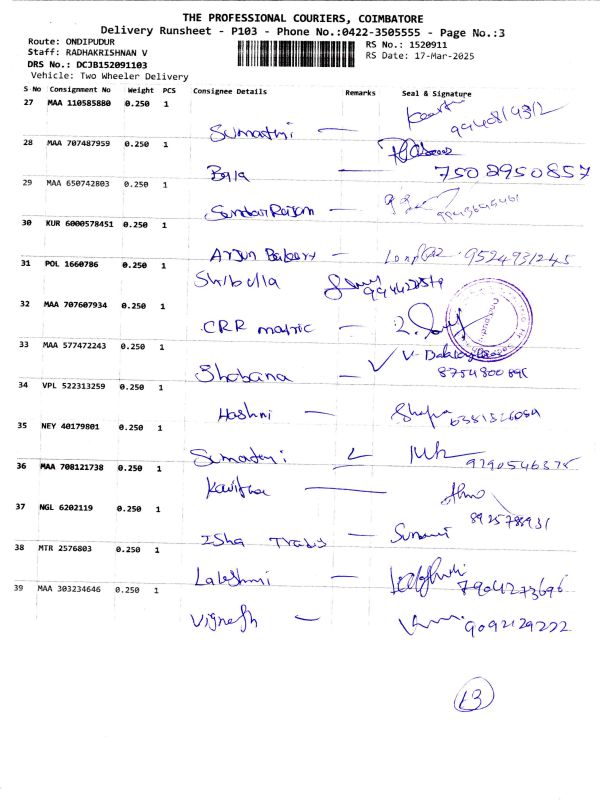 THE PROFESSIONAL COURIERS, COIMBATORE
Delivery Runsheet - P103 - Phone No.:0422-3505555 - Page No.:3
Route: ONDIPUDUR RS No.: 1520911
Staff: RADHAKRISHNAN V RS Date: 17-Mar-2025
DRS No.: DCJB152091103
Vehicle: Two Wheeler Delivery
S No Consignment No Weight PCS Consignee Details Remarks Seal & Signature
27 MAA 110585880 0.250 1
Sumathi —
28 MAA 707487959 0.250 1
Bala — 7508950857
29 MAA 650742803 0.250 1
30 KUR 6000578451 0.250 1
Arjun Bakery - 9524931245
31 POL 1660786 0.250 1
32 MAA 707607934 0.250 1
CRR matric —
33 MAA 577472243 0.250 1
Shobana —
34 VPL 522313259 0.250 1
Hashni —
35 NEY 40179801 0.250 1
Sumathi
36 MAA 708121738 0.250 1
Kavitha —
37 NGL 6202119 0.250 1
Isha —
38 MTR 2576803 0.250 1
Lakshmi — 7904273696
39 MAA 303234646 0.250 1
Vignesh — 9092129222
13